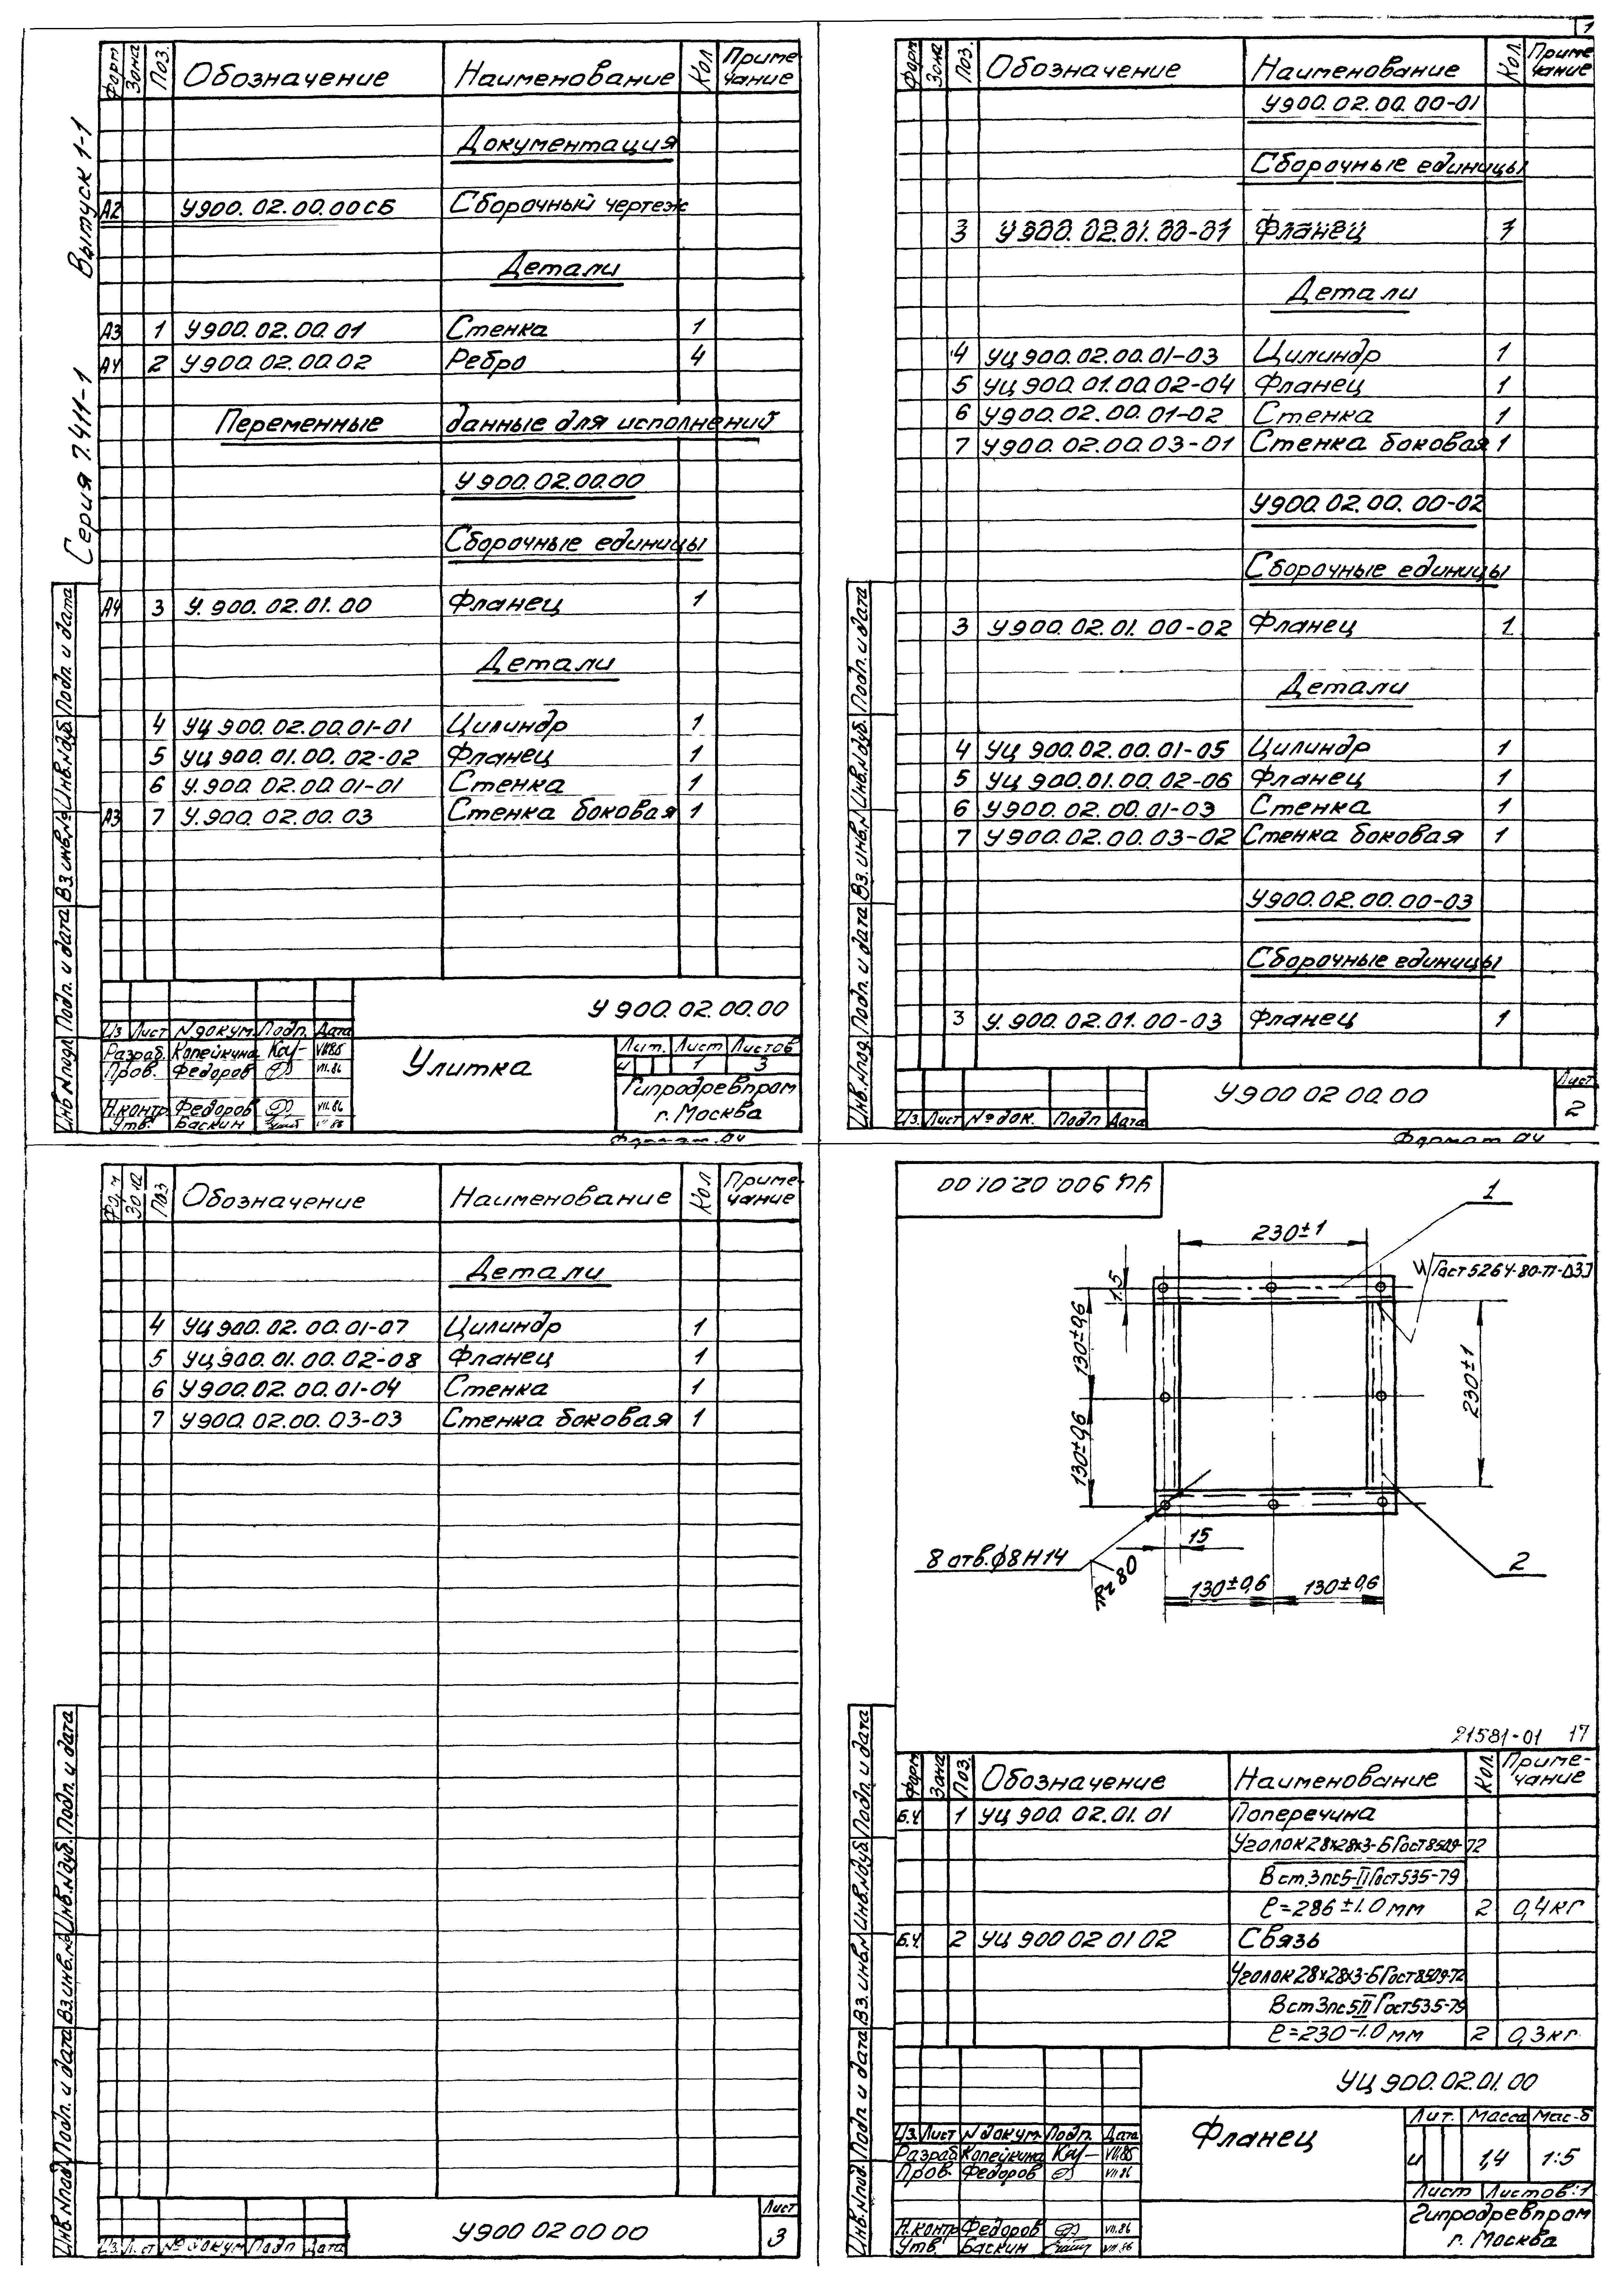 1
Серия 7.411-1 Выпуск 1-1
Форм Зона Поз. Обозначение Наименование Кол Приме-чание
Документация
А2 У900.02.00.00СБ Сборочный чертеж
Детали
А3 1 У900.02.00.01 Стенка 1
А4 2 У900.02.00.02 Ребро 4
Переменные данные для исполнений
У900.02.00.00
Сборочные единицы
А4 3 У.900.02.01.00 Фланец 1
Детали
4 УЦ 900.02.00.01-01 Цилиндр 1
5 УЦ 900.01.00.02-02 Фланец 1
6 У.900.02.00.01-01 Стенка 1
А3 7 У.900.02.00.03 Стенка боковая 1
Инв.№подл. Подп. и дата Вз.инв.№ Инв.№дуб. Подп. и дата
У 900.02.00.00
Из Лист №докум. Подп. Дата
Разраб. Копейкина VII.85
Пров. Федоров VII.86
Н.контр Федоров VII.86
Утв. Баскин
Улитка
Лит. Лист Листов
и 1 3
Гипродревпром
г. Москва
Формат А4
Форм Зона Поз. Обозначение Наименование Кол. Приме-чание
У900.02.00.00-01
Сборочные единицы
3 У900.02.01.00-01 Фланец 1
Детали
4 УЦ 900.02.00.01-03 Цилиндр 1
5 УЦ 900.01.00.02-04 Фланец 1
6 У900.02.00.01-02 Стенка 1
7 У900.02.00.03-01 Стенка боковая 1
У900.02.00.00-02
Сборочные единицы
3 У900.02.01.00-02 Фланец 1
Детали
4 УЦ 900.02.00.01-05 Цилиндр 1
5 УЦ 900.01.00.02-06 Фланец 1
6 У900.02.00.01-03 Стенка 1
7 У900.02.00.03-02 Стенка боковая 1
У900.02.00.00-03
Сборочные единицы
3 У.900.02.01.00-03 Фланец 1
Инв.№под. Подп. и дата Вз.инв.№ Инв.№дуб. Подп. и дата
Из. Лист №док. Подп Дата
У900 02 00.00
Лист
2
Формат А4
Форм Зона Поз Обозначение Наименование Кол Приме-чание
Детали
4 УЦ 900.02.00.01-07 Цилиндр 1
5 УЦ 900.01.00.02-08 Фланец 1
6 У900.02.00.01-04 Стенка 1
7 У900.02.00.03-03 Стенка боковая 1
Инв.№под. Подп. и дата Вз.инв.№ Инв.№дуб. Подп. и дата
Из. Лист №докум Подп Дата
У900 02 00 00
Лист
3
УЦ 900.02.01.00
1
230±1
1.5
Гост 5264-80-Т1-
130±0,6
230±1
130±0,6
15
8 отв.ф8Н14
Rz 80
2
130±0,6 130±0,6
21581-01 17
Форм Зона Поз. Обозначение Наименование Кол. Приме-чание
Б.Ч 1 УЦ 900.02.01.01 Поперечина
Уголок 28х28х3-Б Гост 8509-72
Вст.3пс5-II Гост 535-79
ℓ=286±1.0 мм 2 0,4кг
Б.Ч 2 УЦ 900 02 01 02 Связь
Уголок 28х28х3-Б Гост 8509-72
Вст3пс5II Гост 535-79
ℓ=230-1.0 мм 2 0,3кг
Инв.№под. Подп. и дата Вз.инв.№ Инв.№дуб. Подп. и дата
УЦ 900.02.01.00
Из. Лист №докум. Подп. Дата
Разраб Копейкина VII.85
Пров. Федоров VII.86
Н.контр Федоров VII.86
Утв. Баскин VII.86
Фланец
Лит. Масса Мас-б
и 1,4 1:5
Лист Листов:1
Гипродревпром
г. Москва